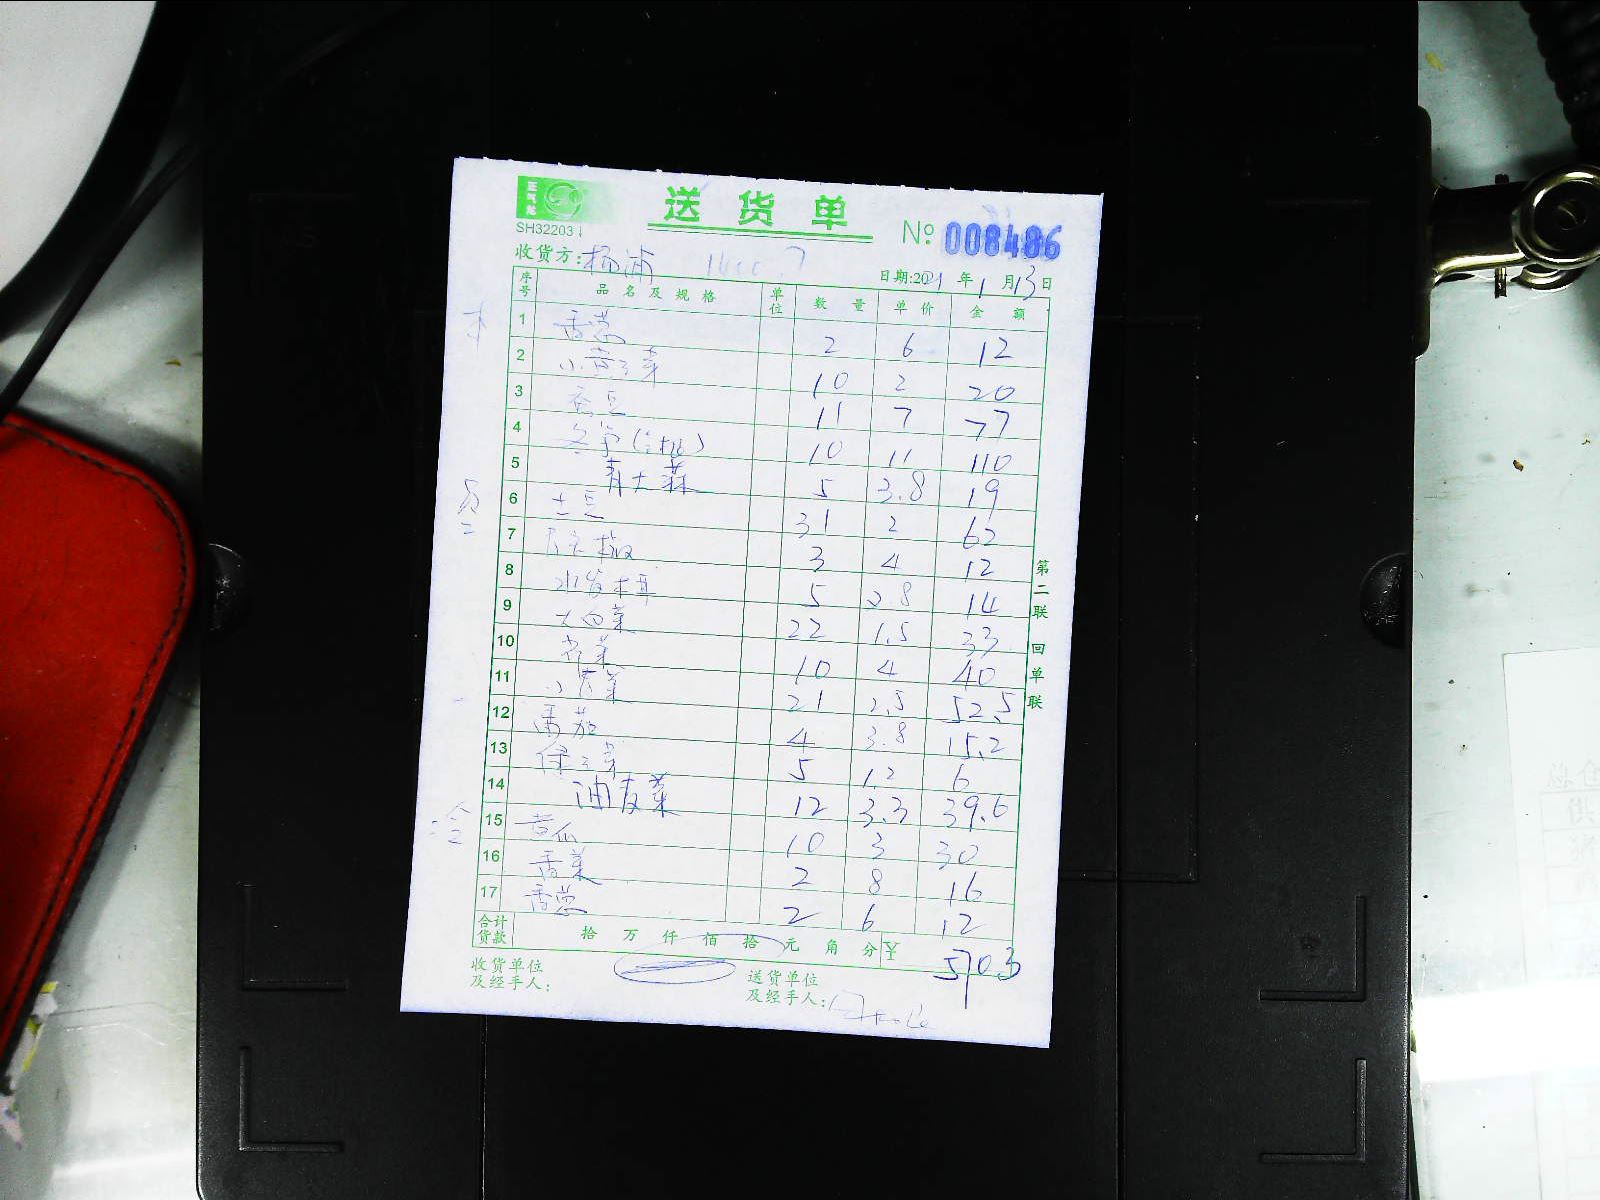 送货单
SH32203
№ 008486
收货方: 杨浦
日期:2021年1月13日
序号 品名及规格 单位 数量 单价 金额
1 香葱 2 6 12
2 小黄豆芽 10 2 20
3 蚕豆 11 7 77
4 冬笋 10 11 110
5 青大蒜 5 3.8 19
6 土豆 31 2 62
7 椒 3 4 12
8 水发木耳 5 2.8 14
9 大白菜 22 1.5 33
10 菜 10 4 40
11 小菜 21 2.5 52.5
12 番茄 4 3.8 15.2
13 绿豆芽 5 1.2 6
14 油麦菜 12 3.3 39.6
15 黄瓜 10 3 30
16 香菜 2 8 16
17 香葱 2 6 12
合计货款 拾万仟佰拾元角分 ¥ 570.3
收货单位及经手人:
送货单位及经手人:
第二联 回单联